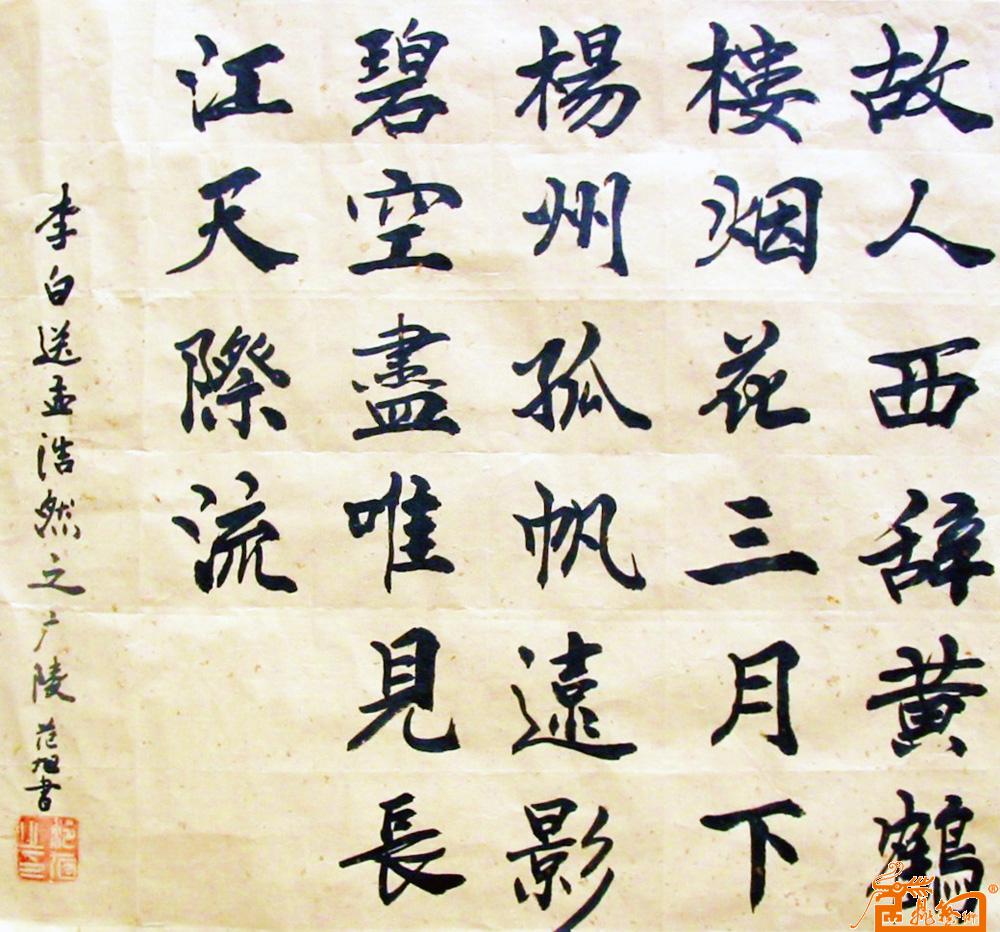 故人西辞黄鹤
樓烟花三月下
楊州孤帆遠影
碧空盡唯見長
江天際流
李白送孟浩然之广陵 范旭書